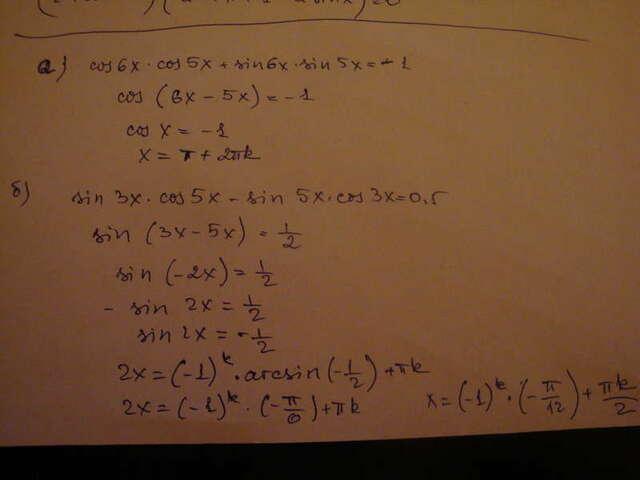 а) cos6x·cos5x+sin6x·sin5x=-1
cos (6x-5x)=-1
cos x=-1
x=π+2πk
б) sin 3x·cos5x-sin 5x·cos3x=0,5
sin (3x-5x)=1/2
sin (-2x)=1/2
- sin 2x=1/2
sin 2x=-1/2
2x=(-1)^k·arcsin(-1/2)+πk
2x=(-1)^k·(-π/6)+πk
x=(-1)^k·(-π/12)+πk/2